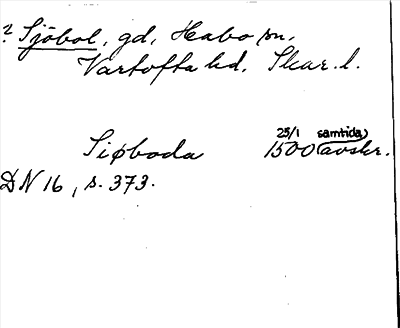 ? Sjöbol, gd, Habo sn.
Vartofta hd. Skar. l.
Siøboda 25/1 1500 (samtida) avskr.
DN 16, s. 373.